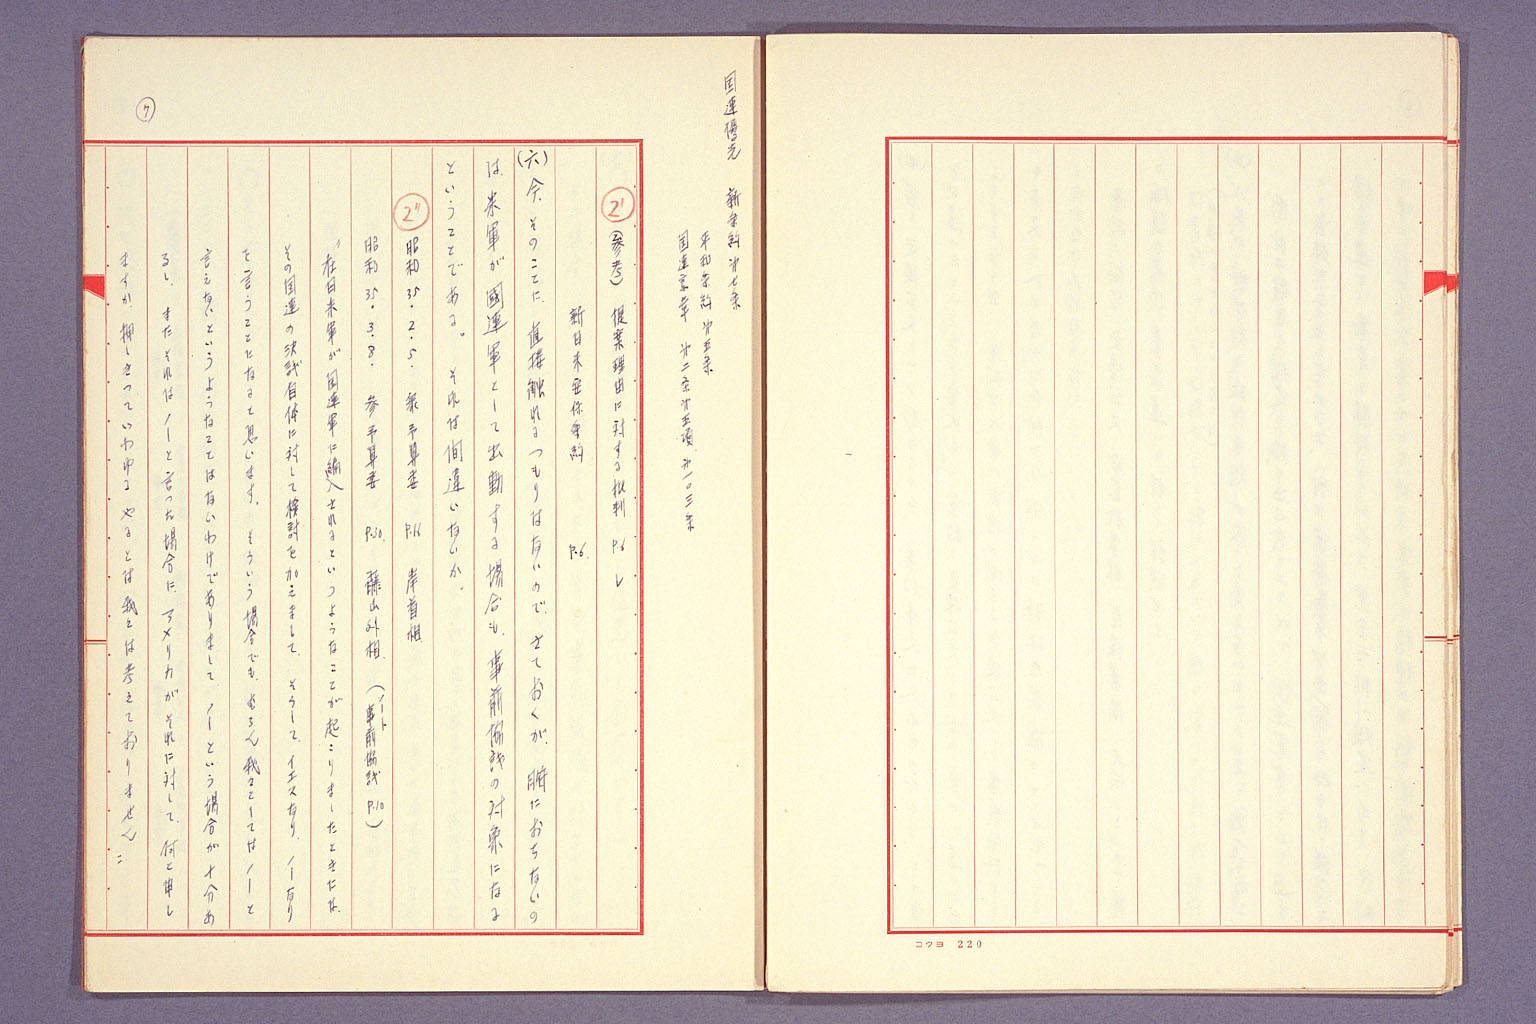 国連優先　新条約第七条
平和条約第五条
国連憲章　第二条第五項、第一〇三条
2'（参考）　提案理由に対する批判　P.6
新日米安保条約　P.6.
(六)　今、そのことに、直接触れるつもりはないので、さておくが、腑におちないの
は、米軍が國連軍として出動する場合も、事前協議の対象になる
ということである。　それは間違いないか。
2''　昭和35.2.5.　衆予算委　P.16　岸首相
昭和35.3.8.　参予算委　P.30.　藤山外相.　（ノート　事前協議　P.10）
"在日米軍が国連軍に編入されるというようなことが起こりましたときには、
その国連の決議自体に対して検討を加えまして、そうして、イエスなり、ノーなり
を言うことになると思います。　そういう場合でも、むろん我々としてはノーと
言えないというようなことではないわけでありまして、ノーという場合が十分あ
るし、またそれはノーと言った場合に、アメリカがそれに対して、何と申し
ますか、押しきっていわゆるやるとは我々は考えておりません〃
7
コクヨ　220